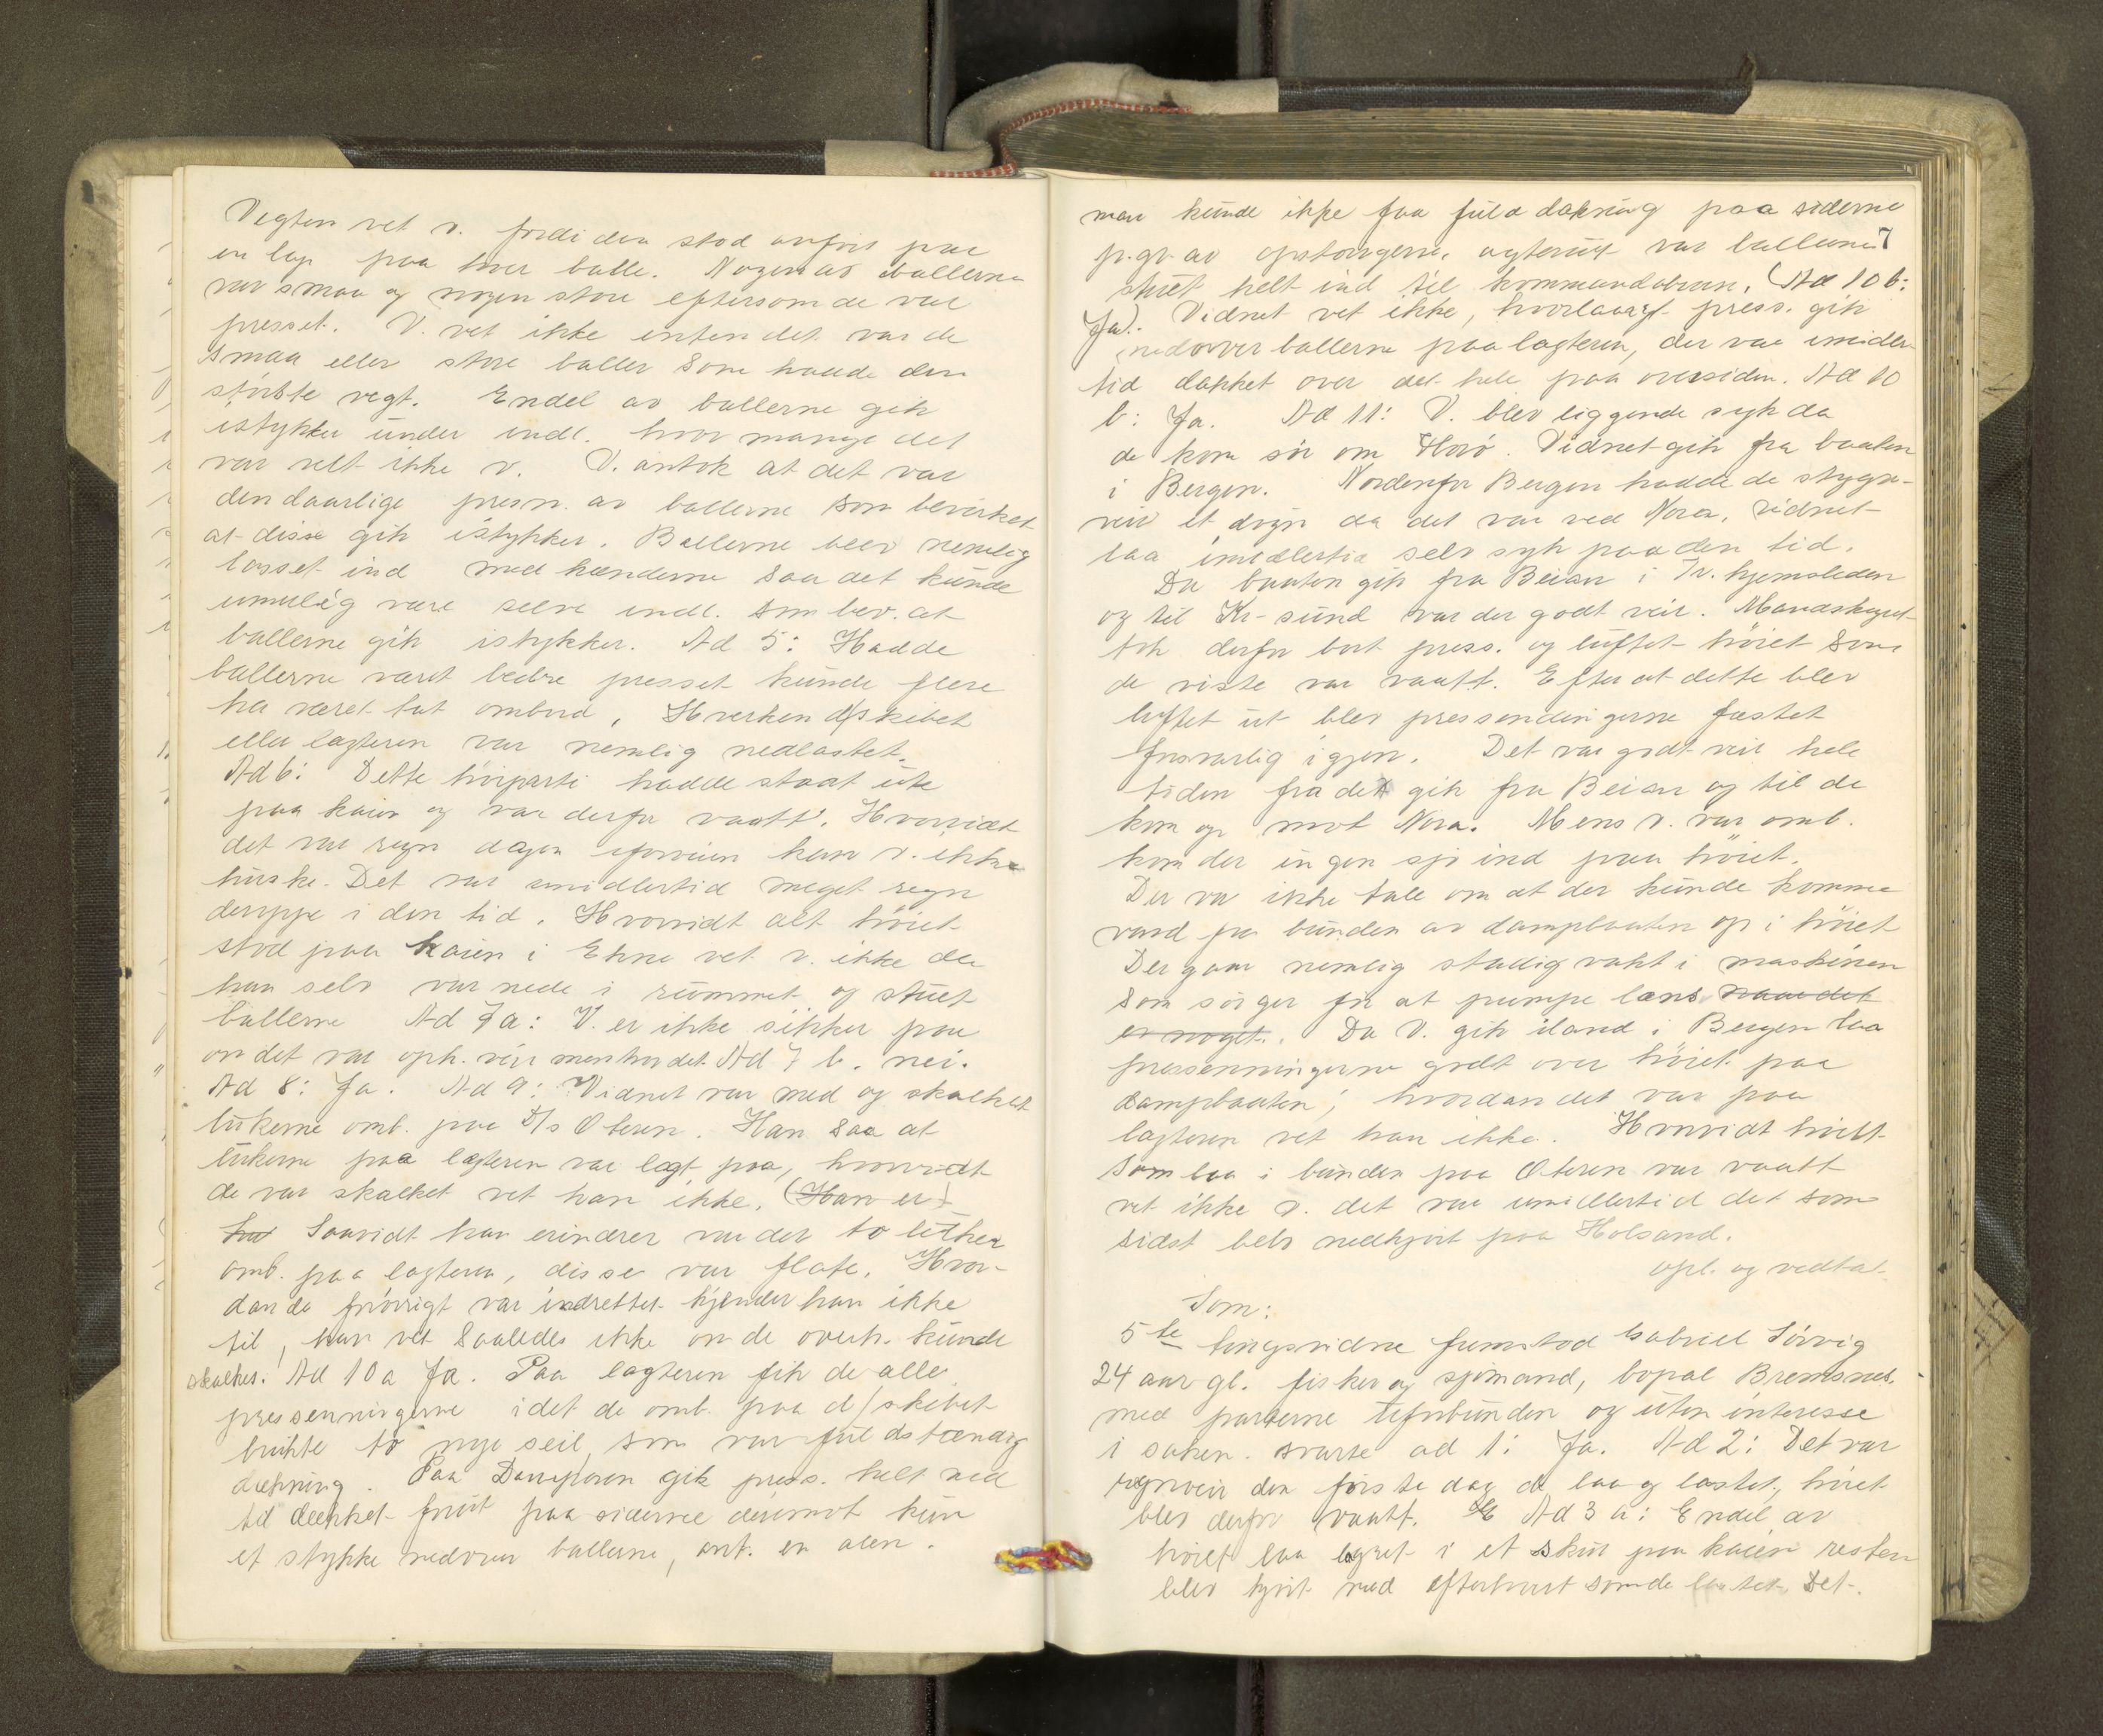 Vegten vet v. fordi den stod anført paa
en lap paa hver balle. Nogen av ballerne
var smaa og nogen store eftersom de var
presset. V. vet ikke enten det var de
smaa eller store baller som hadde den
største vegt. Endel av ballerne gik
istykker under indl. hvor mange det
var vet ikke v. V. antok at det var
den daarlige presn. av ballerne som bevirket
at disse gik istykker. Ballerne blev nemlig
losset ind med hænderne saa det kunde
umulig være selve indl. som bev. at
ballerne gik istykker. Ad 5: Hadde
ballerne været bedre presset kunde flere
ha været tat ombord, Hverken d/skibet
eller lægteren var nemlig nedlastet.
Ad 6: Dette høiparti hadde staat ute
paa kaien og var derfor vaatt. Hvorvidt
det var regn dagen iforveien kan v. ikke
huske. Det var imidlertid meget regn
deroppe i den tid. Hvorvidt alt høiet
stod paa kaien i Ekne vet v. ikke da
han selv var nede i rummet og stuet
ballerne Ad 7a: V. er ikke sikker paa
om det var oph. veir men tror det. Ad 7 b. nei.
Ad 8: Ja. Ad 9: Vidnet var med og skalket
lukerne omb. paa D/s Oteren. Han saa at
lukerne paa lægteren var lagt paa, hvorvidt
de var skalket vet han ikke. (Han er)
har Saavidt han erindrer var der to luker
omb. paa lægteren, disse var flate. Hvor-
dan de forøvrigt var indrettet kjender han ikke
til, han vet saaledes ikke om de overh. kunde
skalkes. Ad 10a Ja. Paa lægteren fik de alle
pressenningerne idet de omb. paa d/skibet
brukte to nye seil som var fuldstændig
dækning. Paa Damperen gik press. helt ned
til dækket forut paa siderne derimot kun
et stykke nedover ballerne, ant. en alen.
man kunde ikke faa fuld dækning paa siderne 7
p.gr.av opstongerne, agterut var ballerne
stuet helt ind til kommandobroen. (Ad 10 b:
Ja). Vidnet vet ikke, hvorlangt press. gik
nedover ballerne paa lægteren, der var imidler-
tid dækket over det hele paa oversiden. Ad 10
b: Ja. Ad 11: V. blev liggende syk da
de kom sør om Florø. Vidnet gik fra baaten
i Bergen. Nordenfor Bergen hadde de stygge-
veir et døgn da det var ved Nora, vidnet
laa imidlertid selv syk paa den tid.
Da baaten gik fra Beian i Tr.hjemsleden
og til Kr-sund var der godt veir. Mandskapet
tok derfor bort press. og luftet høiet som
de viste var vaatt. Efter at dette blev
luftet ut blev pressendingerne fæstet
forsvarlig igjen. Det var godt veir hele
tiden fra de gik fra Beian og til de
kom op mot Nora. Mens v. var omb.
kom der ingen sjø ind paa høiet.
Der var ikke tale om at der kunde komme
vand fra bunden av dampbaaten op i høiet
Der gaar nemlig stadig vakt i maskinen
som sørger for at pumpe læns naar det
er noget. Da V. gik iland i Bergen laa
pressenningerne godt over høiet paa
dampbaaten; hvordan det var paa
lægteren vet han ikke. Hvorvidt høiet
som laa i bunden paa Oteren var vaatt
vet ikke v. det var imidlertid det som
sidst blev nedkjørt paa Holsand.
opl. og vedtat.
Som:
5te tingsvidne fremstod Gabriel Sørvig
24 aar gl. fisker og sjømand, bopæl Bremsnes.
med parterne uforbunden og uten interesse
i saken. svarte ad 1: Ja. Ad 2: Det var
regnveir den første dag de laa og lastet, høiet
blev derfor vaatt. Ad 3 a: Endel av
høiet laa lagret i et skur paa kaien resten
blev kjørt ned efterhvert som de lastet. Det